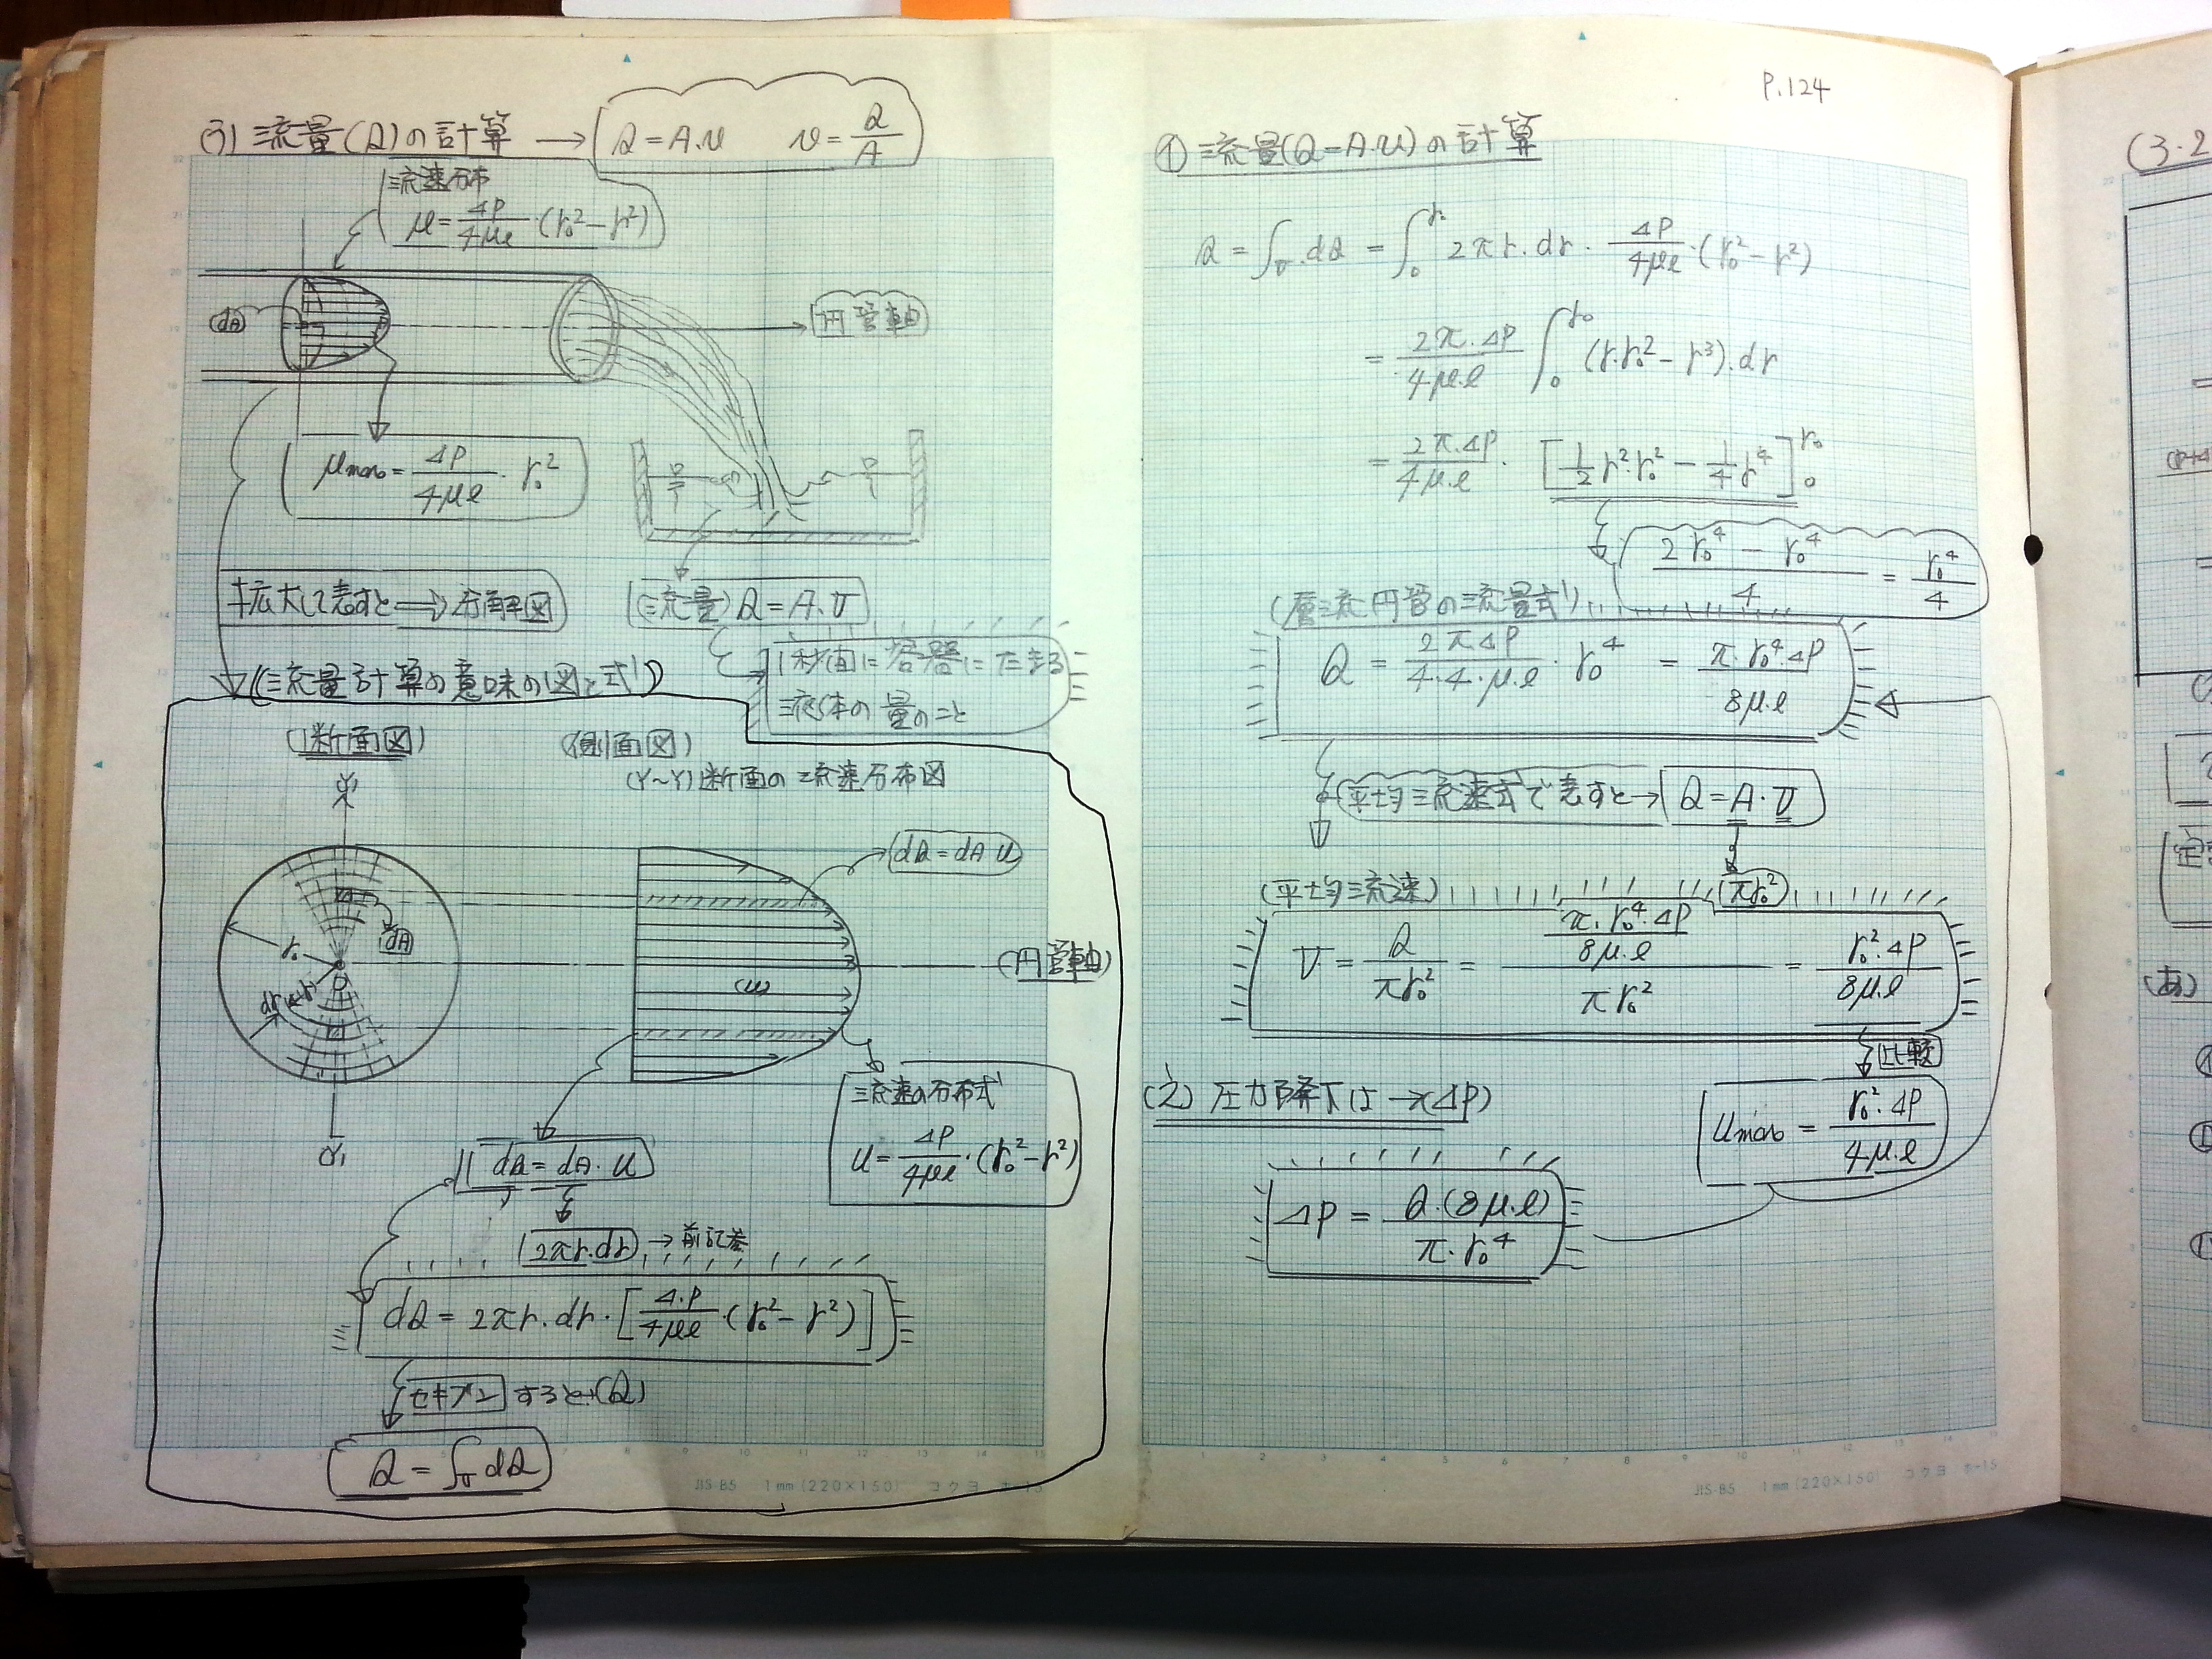 (う) 流量(Q)の計算 → Q=A.u u=Q/A
流速分布
u=ΔP/4μℓ・(r₀²-r²)
dA
円管軸
umax=ΔP/4μℓ・r₀²
拡大して表すと ⇒ 分解図
(流量) Q=A.V
1秒間に容器にたまる
流体の量のこと
(流量計算の意味の図と式)
(断面図)
(側面図)
(Y~Y)断面の流速分布図
Y
dQ=dA・u
dA
r₀
r
dr
O
(u)
(円管軸)
流速の分布式
u=ΔP/4μℓ・(r₀²-r²)
Y
dQ=dA・u
2πr.dr → 前記
dQ=2πr.dr・[Δ.P/4μℓ・(r₀²-r²)]
セキブンすると→(Q)
Q=∫dQ
JIS-B5 1mm(220×150) コクヨ ホ-15
P.124
① 流量(Q=A.u)の計算
Q=∫.dQ=∫₀^r₀ 2πr.dr・ΔP/4μℓ・(r₀²-r²)
=2π.ΔP/4μ.ℓ ∫₀^r₀ (r.r₀²-r³).dr
=2π.ΔP/4μ.ℓ・[1/2 r².r₀²-1/4 r⁴]₀^r₀
2r₀⁴-r₀⁴/4=r₀⁴/4
(層流円管の流量式)
Q=2πΔP/4.4.μ.ℓ・r₀⁴=π.r₀⁴.ΔP/8μ.ℓ
平均流速式で表すと→ Q=A・V
πr₀²
(平均流速)
V=Q/πr₀²=π.r₀⁴.ΔP/8μ.ℓ/πr₀²=r₀².ΔP/8μ.ℓ
比較
umax=r₀².ΔP/4μ.ℓ
(え) 圧力降下は→(ΔP)
ΔP=Q.(8μ.ℓ)/π.r₀⁴
JIS-B5 1mm(220×150) コクヨ ホ-15
(3.2
(あ)